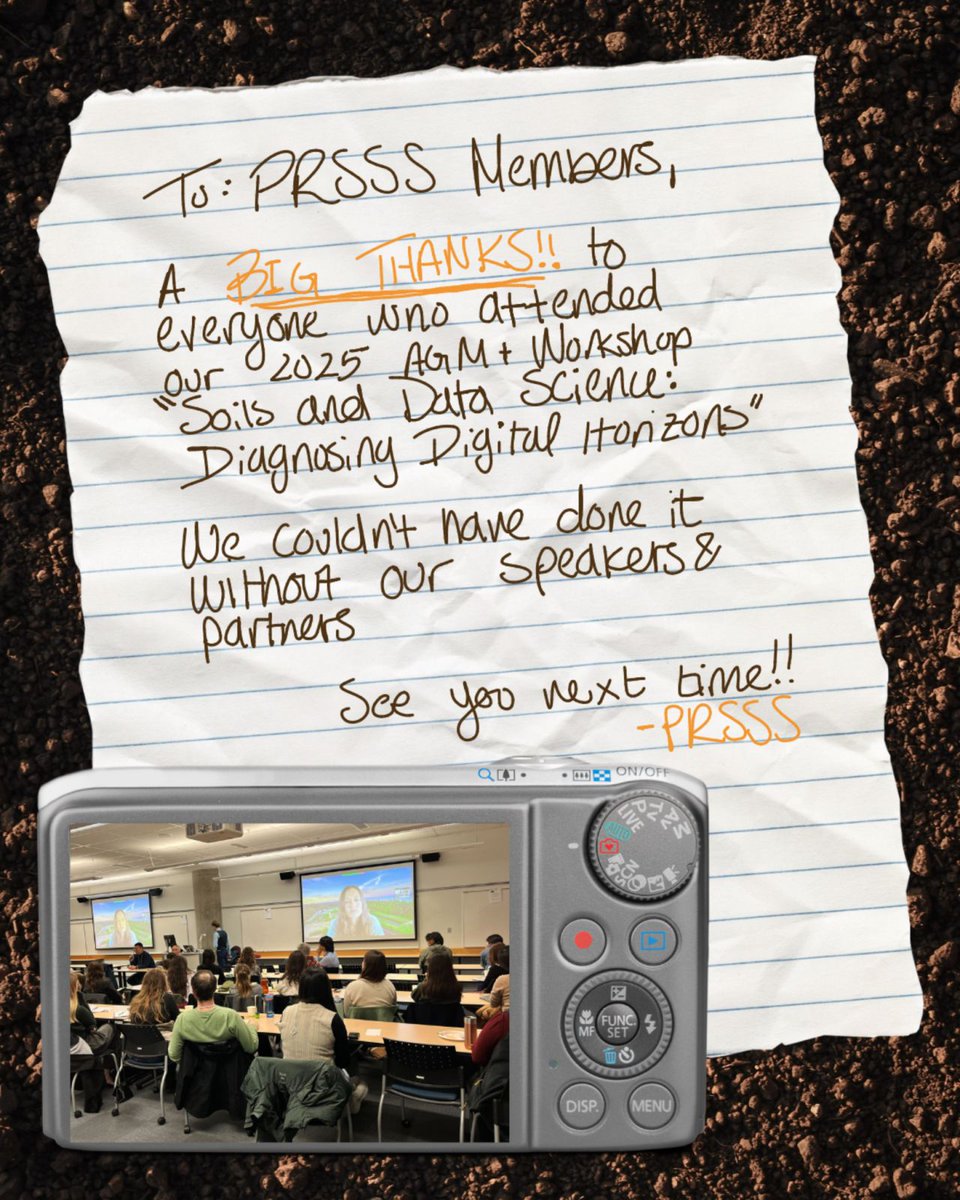 To: PRSSS Members,
A BIG THANKS!! to
everyone who attended
our 2025 AGM + Workshop
"Soils and Data Science:
Diagnosing Digital Horizons"
We couldn't have done it
without our speakers &
partners
See you next time!!
-PRSSS
ON/OFF
LIVE
AUTO
MF
FUNC.
SET
DISP.
MENU